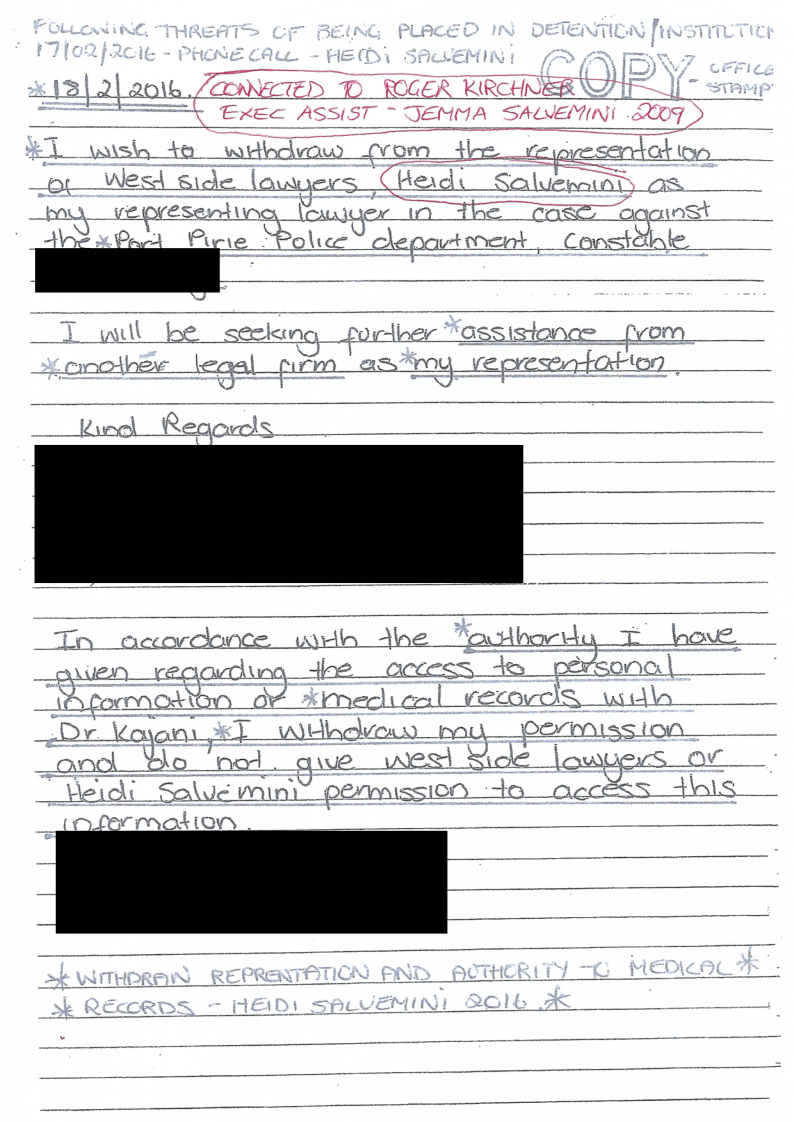 FOLLOWING THREATS OF BEING PLACED IN DETENTION/INSTITUTION
17/02/2016 - PHONE CALL - HEIDI SALVEMINI COPY - OFFICE
STAMP
*18/2/2016. CONNECTED TO ROGER KIRCHNER
EXEC ASSIST - JEMMA SALVEMINI 2009
*I wish to withdraw from the representation
of West side lawyers, Heidi Salvemini as
my representing lawyer in the case against
the *Port Pirie Police department, Constable
I will be seeking further *assistance from
*another legal firm as *my representation.
Kind Regards
In accordance with the *authority I have
given regarding the access to personal
information or *medical records with
Dr. Kajani, *I withdraw my permission
and do not give west side lawyers or
Heidi Salvemini permission to access this
information.
*WITHDRAW REPRENTATION AND AUTHORITY TO MEDICAL*
*RECORDS - HEIDI SALVEMINI 2016.*